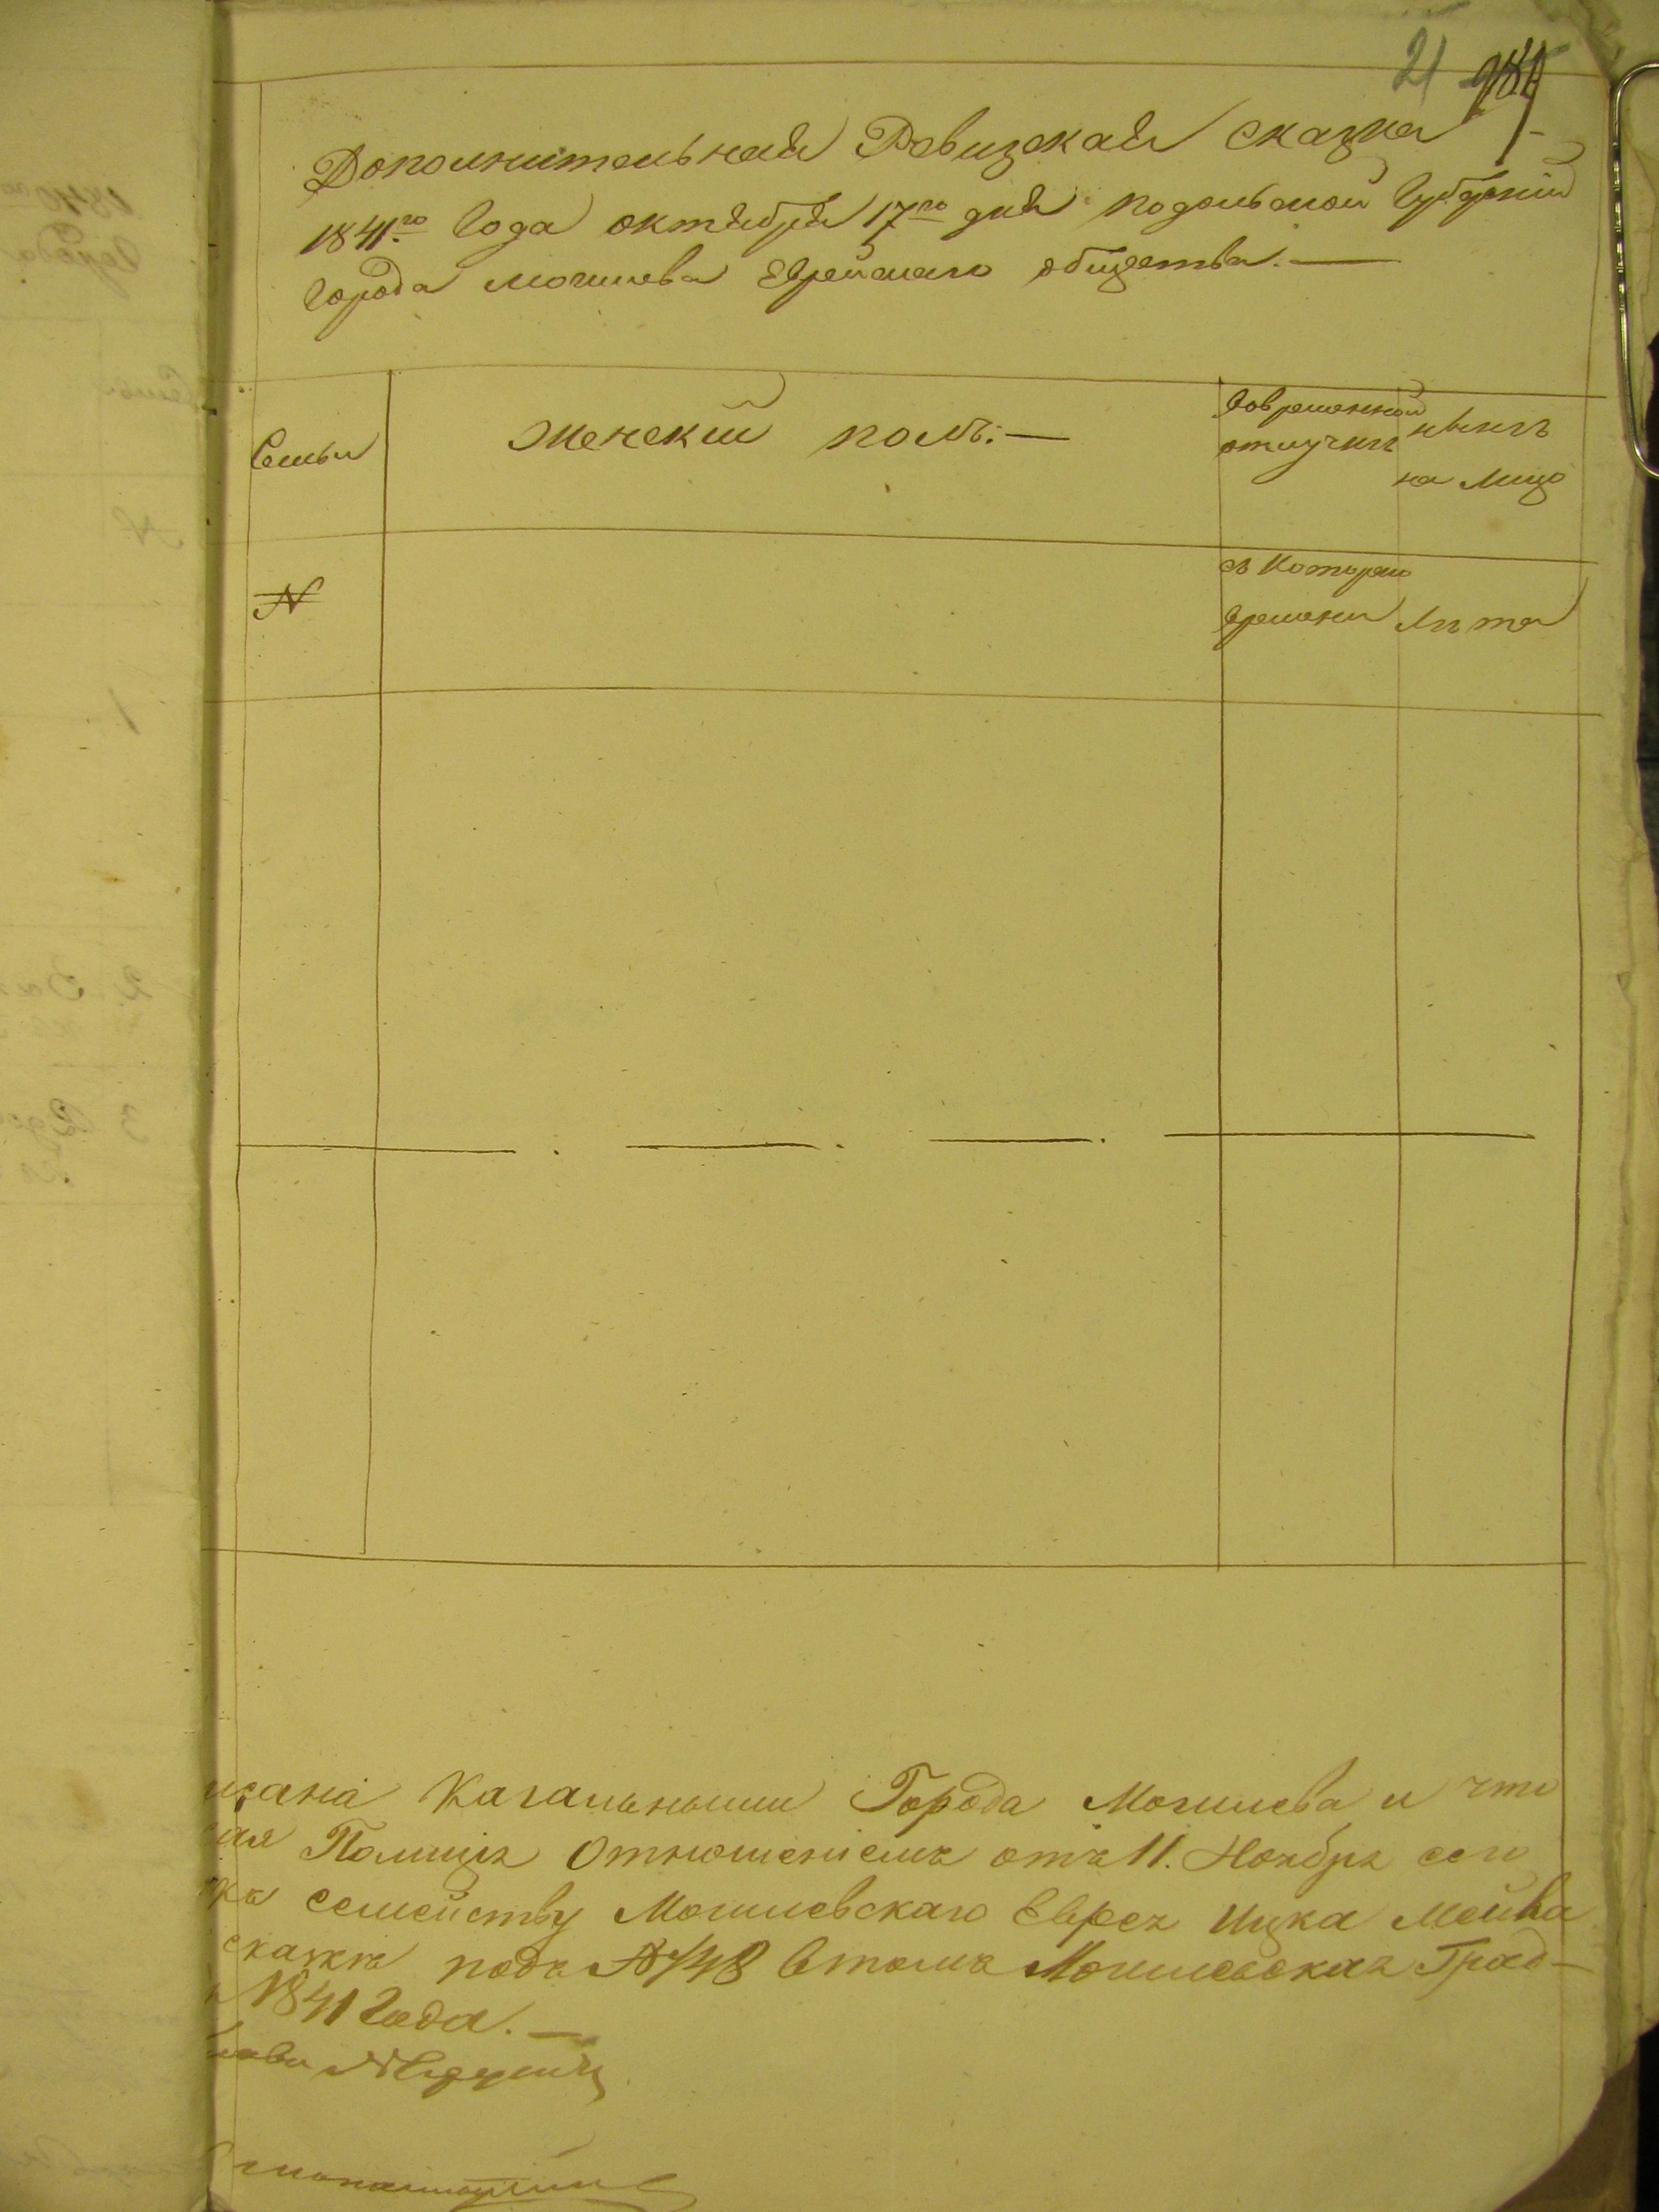 21
Дополнительная Ревизская сказка
1841го Года октября 17го дня Подольской Губернии
Города Могилева Еврейскаго общества.—
Семьи
Женский полъ.—
Вовременной отлучкѣ
нынѣ на Лицо
N
съ Котораго времени
Лѣта
писана Кагальными Города Могилева и что
ая Полиція Отношеніемъ отъ 11. Ноября сего
къ семейству Могилевскаго Еврея Ицка
сказкѣ подъ № 748 Втомъ Могилевская Град—
1841 Года.—